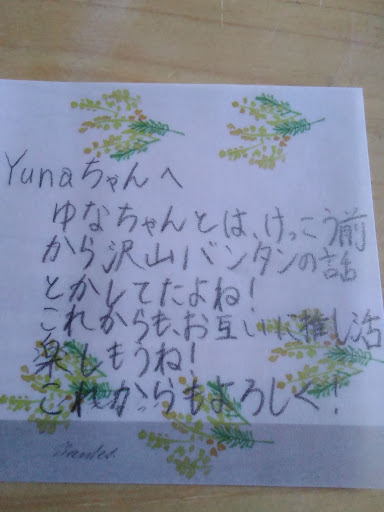 Yunaちゃんへ
ゆなちゃんとは、けっこう前
から沢山バンタンの話
とかしてたよね!
これからも、お互いに推し活
楽しもうね!
これからもよろしく!